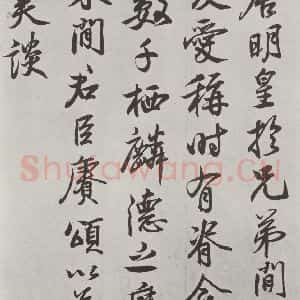 唐明皇於兄弟間
友愛稱時有脊令
數千栖麟德之
木間君臣賡頌以
美談
Shufawang.cn